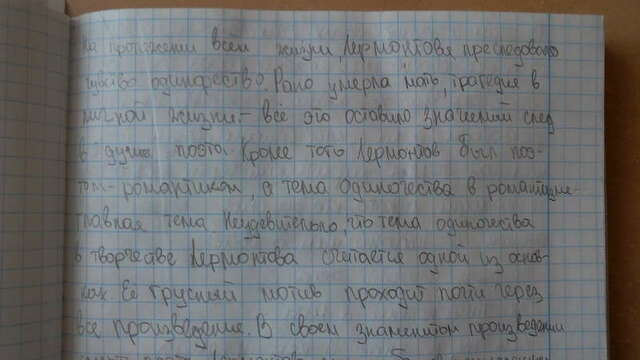 на протяжении всей жизни, Лермонтова преследовало
чувство одиночество. Рано умерла мать, трагедие в
личной жизни - всё это оставило значений след
в душе поэта. Кроме того Лермонтов был поэ-
том-романтиком, а тема одиночества в романтизме-
главная тема. Неудевительно, что тема одиночества
в творчестве Лермонтова считается одной из основ-
ных. Её грусный мотив проходит почти через
все произведение. В своём знаменитом произведении